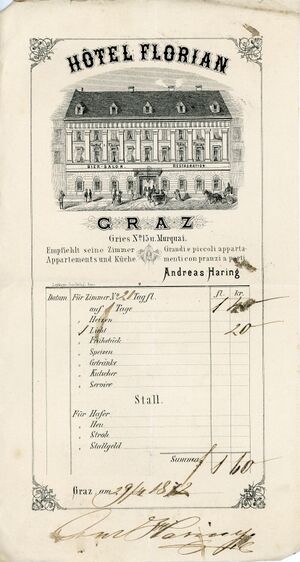 HÔTEL FLORIAN
BIER-SALON RESTAURATION
GRAZ
Gries No 15 u. Murquai.
Empfiehlt seine Zimmer Grandi e piccoli apparta-
Appartements und Küche menti con pranzi a parti
Andreas Haring
Datum Für Zimmer No 21 Tag fl. fl. kr.
auf 1 Tage 1 40
" Heizen
" 1 Licht 20
" Frühstück
" Speisen
" Getränke
" Kutscher
" Service
Stall.
Für Hafer
" Heu
" Stroh
" Stallgeld
Summa f 1 60
Graz am 29/4 1872
Haring